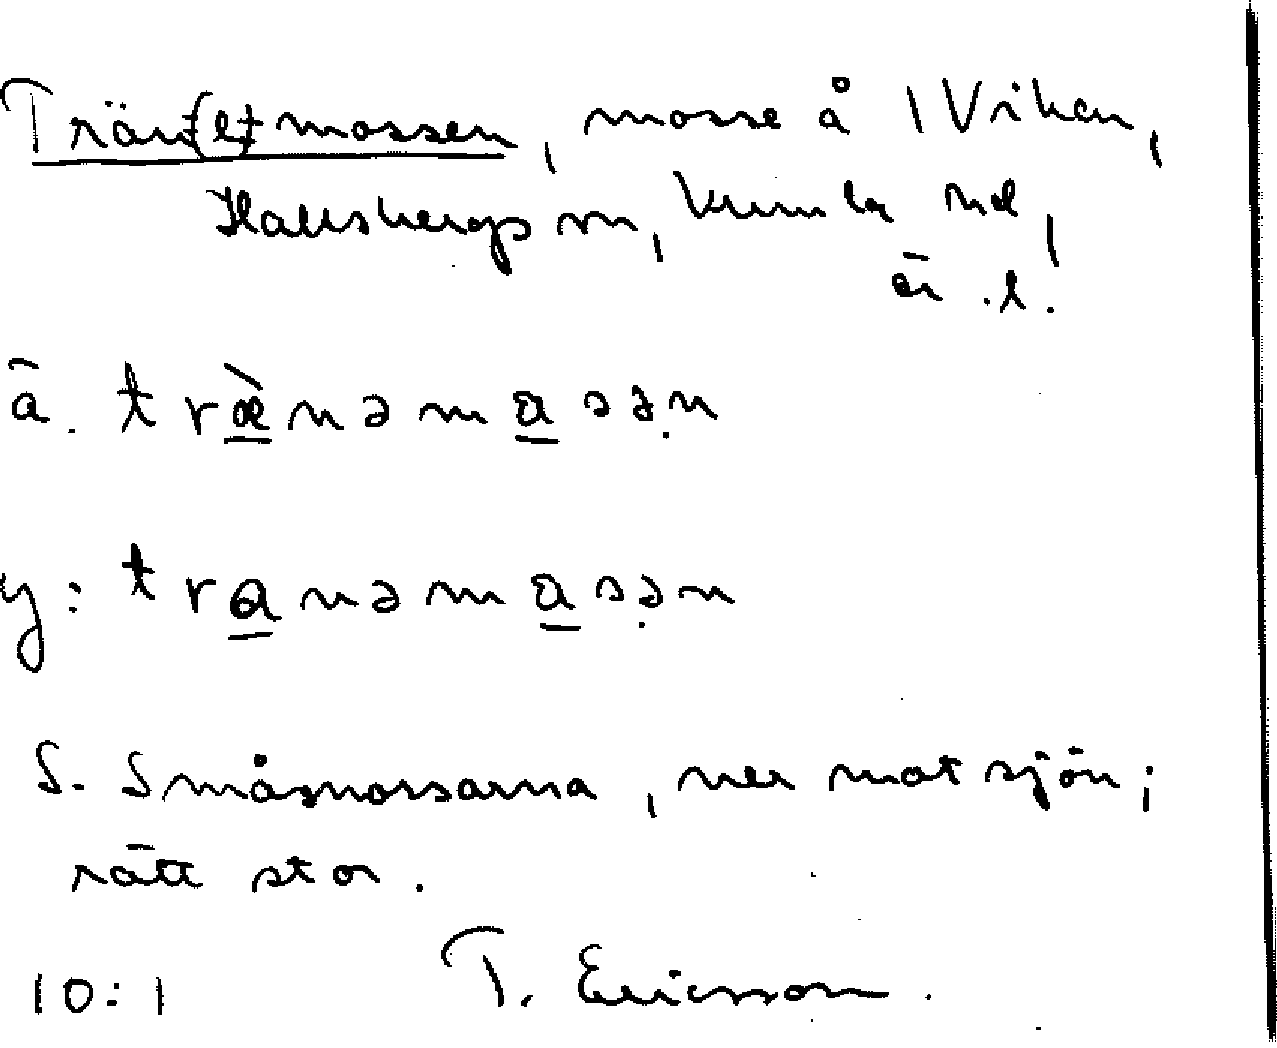 Trän[e]mossen, mosse å 1 Viken,
Hallsbergs sn, Kumla hd,
är .l.
ä. træ̀nəmasən
y: tranəmasən
S. Småmossarna, ner mot sjön;
rätt stor.
10:1 T. Ericsson.